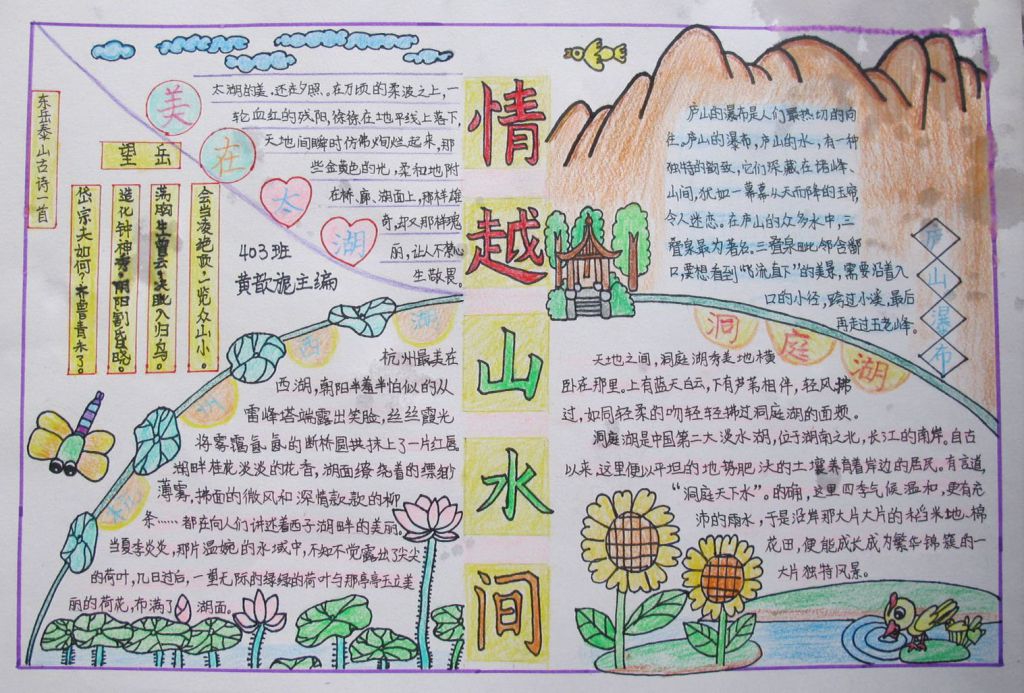 情越山水间
东岳泰山古诗一首
望岳
岱宗夫如何，齐鲁青未了。
造化钟神秀，阴阳割昏晓。
荡胸生曾云，决眦入归鸟。
会当凌绝顶，一览众山小。
美在太湖
太湖的美，还在夕照。在万顷的柔波之上，一
轮血红的残阳，徐徐在地平线上落下，
天地间瞬时仿佛绚烂起来，那
些金黄色的光，柔和地附
在桥、廊、湖面上，那样雄
奇，却又那样瑰
丽，让人不禁心
生敬畏。
403班
黄歆旎主编
杭州西湖
杭州最美在
西湖，朝阳半羞半怕似的从
雷峰塔端露出笑脸，丝丝霞光
将雾霭氤氲的断桥圆拱抹上了一片红晕
湖畔桂花淡淡的花香，湖面缭绕着的缥缈
薄雾，拂面的微风和深情款款的柳
条……都在向人们讲述着西子湖畔的美丽。
当夏季炎炎，那片温婉的水域中，不知不觉露出了尖尖
的荷叶，几日过后，一望无际的绿绿的荷叶与那亭亭玉立美
丽的荷花，布满了湖面。
庐山瀑布
庐山的瀑布是人们最热切的向
往。庐山的瀑布，庐山的水，有一种
独特的韵致，它们深藏在诸峰、
山间，犹如一幕幕从天而降的玉帘，
令人迷恋。在庐山的众多水中，三
叠泉最为著名。三叠泉毗邻含鄱
口，要想看到“飞流直下”的美景，需要沿着入
口的小径，跨过小溪，最后
再走过五老峰。
洞庭湖
天地之间，洞庭湖秀美地横
卧在那里。上有蓝天白云，下有芦苇相伴，轻风拂
过，如同轻柔的吻轻轻拂过洞庭湖的面颊。
洞庭湖是中国第二大淡水湖，位于湖南之北，长江的南岸。自古
以来，这里便以平坦的地势、肥沃的土壤养育着岸边的居民。有言道，
“洞庭天下水”。的确，这里四季气候温和，更有充
沛的雨水，于是沿岸那大片大片的稻米地、棉
花田，便能成长成为繁华锦簇的一
大片独特风景。